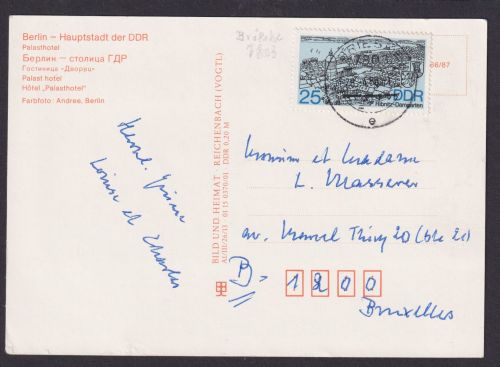 Berlin – Hauptstadt der DDR
Palasthotel
Берлин – столица ГДР
Гостиница «Дворец»
Palast hotel
Hôtel „Palasthotel“
Farbfoto: Andree, Berlin
Louise et Charles
BILD UND HEIMAT REICHENBACH (VOGTL)
A1/III/26/13 01 15 0370/01 DDR 0,20 M
25 DDR
Ribnitz-Damgarten
66/87
Monsieur et Madame
L. Massaver
av. Marcel Thiry 20 (bte 21)
B-1200
Bruxelles